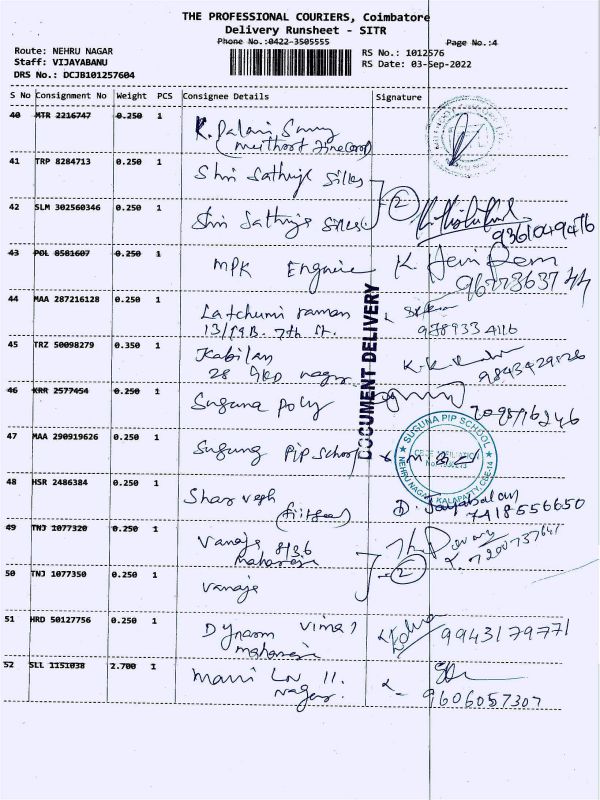 THE PROFESSIONAL COURIERS, Coimbatore
Delivery Runsheet - SITR
Phone No.:0422-3505555
Page No.:4
Route: NEHRU NAGAR
RS No.: 1012576
Staff: VIJAYABANU
RS Date: 03-Sep-2022
DRS No.: DCJB101257604
S No Consignment No Weight PCS Consignee Details Signature
40 MTR 2216747 0.250 1 K. Palani Samy
41 TRP 8284713 0.250 1 Shri Sathuje Silks
42 SLM 302560346 0.250 1 Shri Sathuje Silks 2
9361049476
43 POL 8581607 0.250 1 MPK Engnie K. Hari Ram
9677863744
44 MAA 287216128 0.250 1 Latchumi raman
13/19B. 7th St. 9789334116
45 TRZ 50098279 0.350 1 Kabilan
28 nagar 9843429826
46 KRR 2577454 0.250 1 Suguna Poly
47 MAA 290919626 0.250 1 Suguna PIP School
SUGUNA PIP SCHOOL
NEHRU NAGAR, KALAPATTY, CBE-14
48 HSR 2486384 0.250 1 Shar vesh D. Jayabalan
7418556650
49 TNJ 1077320 0.250 1 Vanaje 8/36
50 TNJ 1077350 0.250 1 Vanaje 2
51 HRD 50127756 0.250 1 Dynaom Vimal 9943179771
52 SLL 1151038 2.700 1
Nagar. 9606057307
DOCUMENT DELIVERY